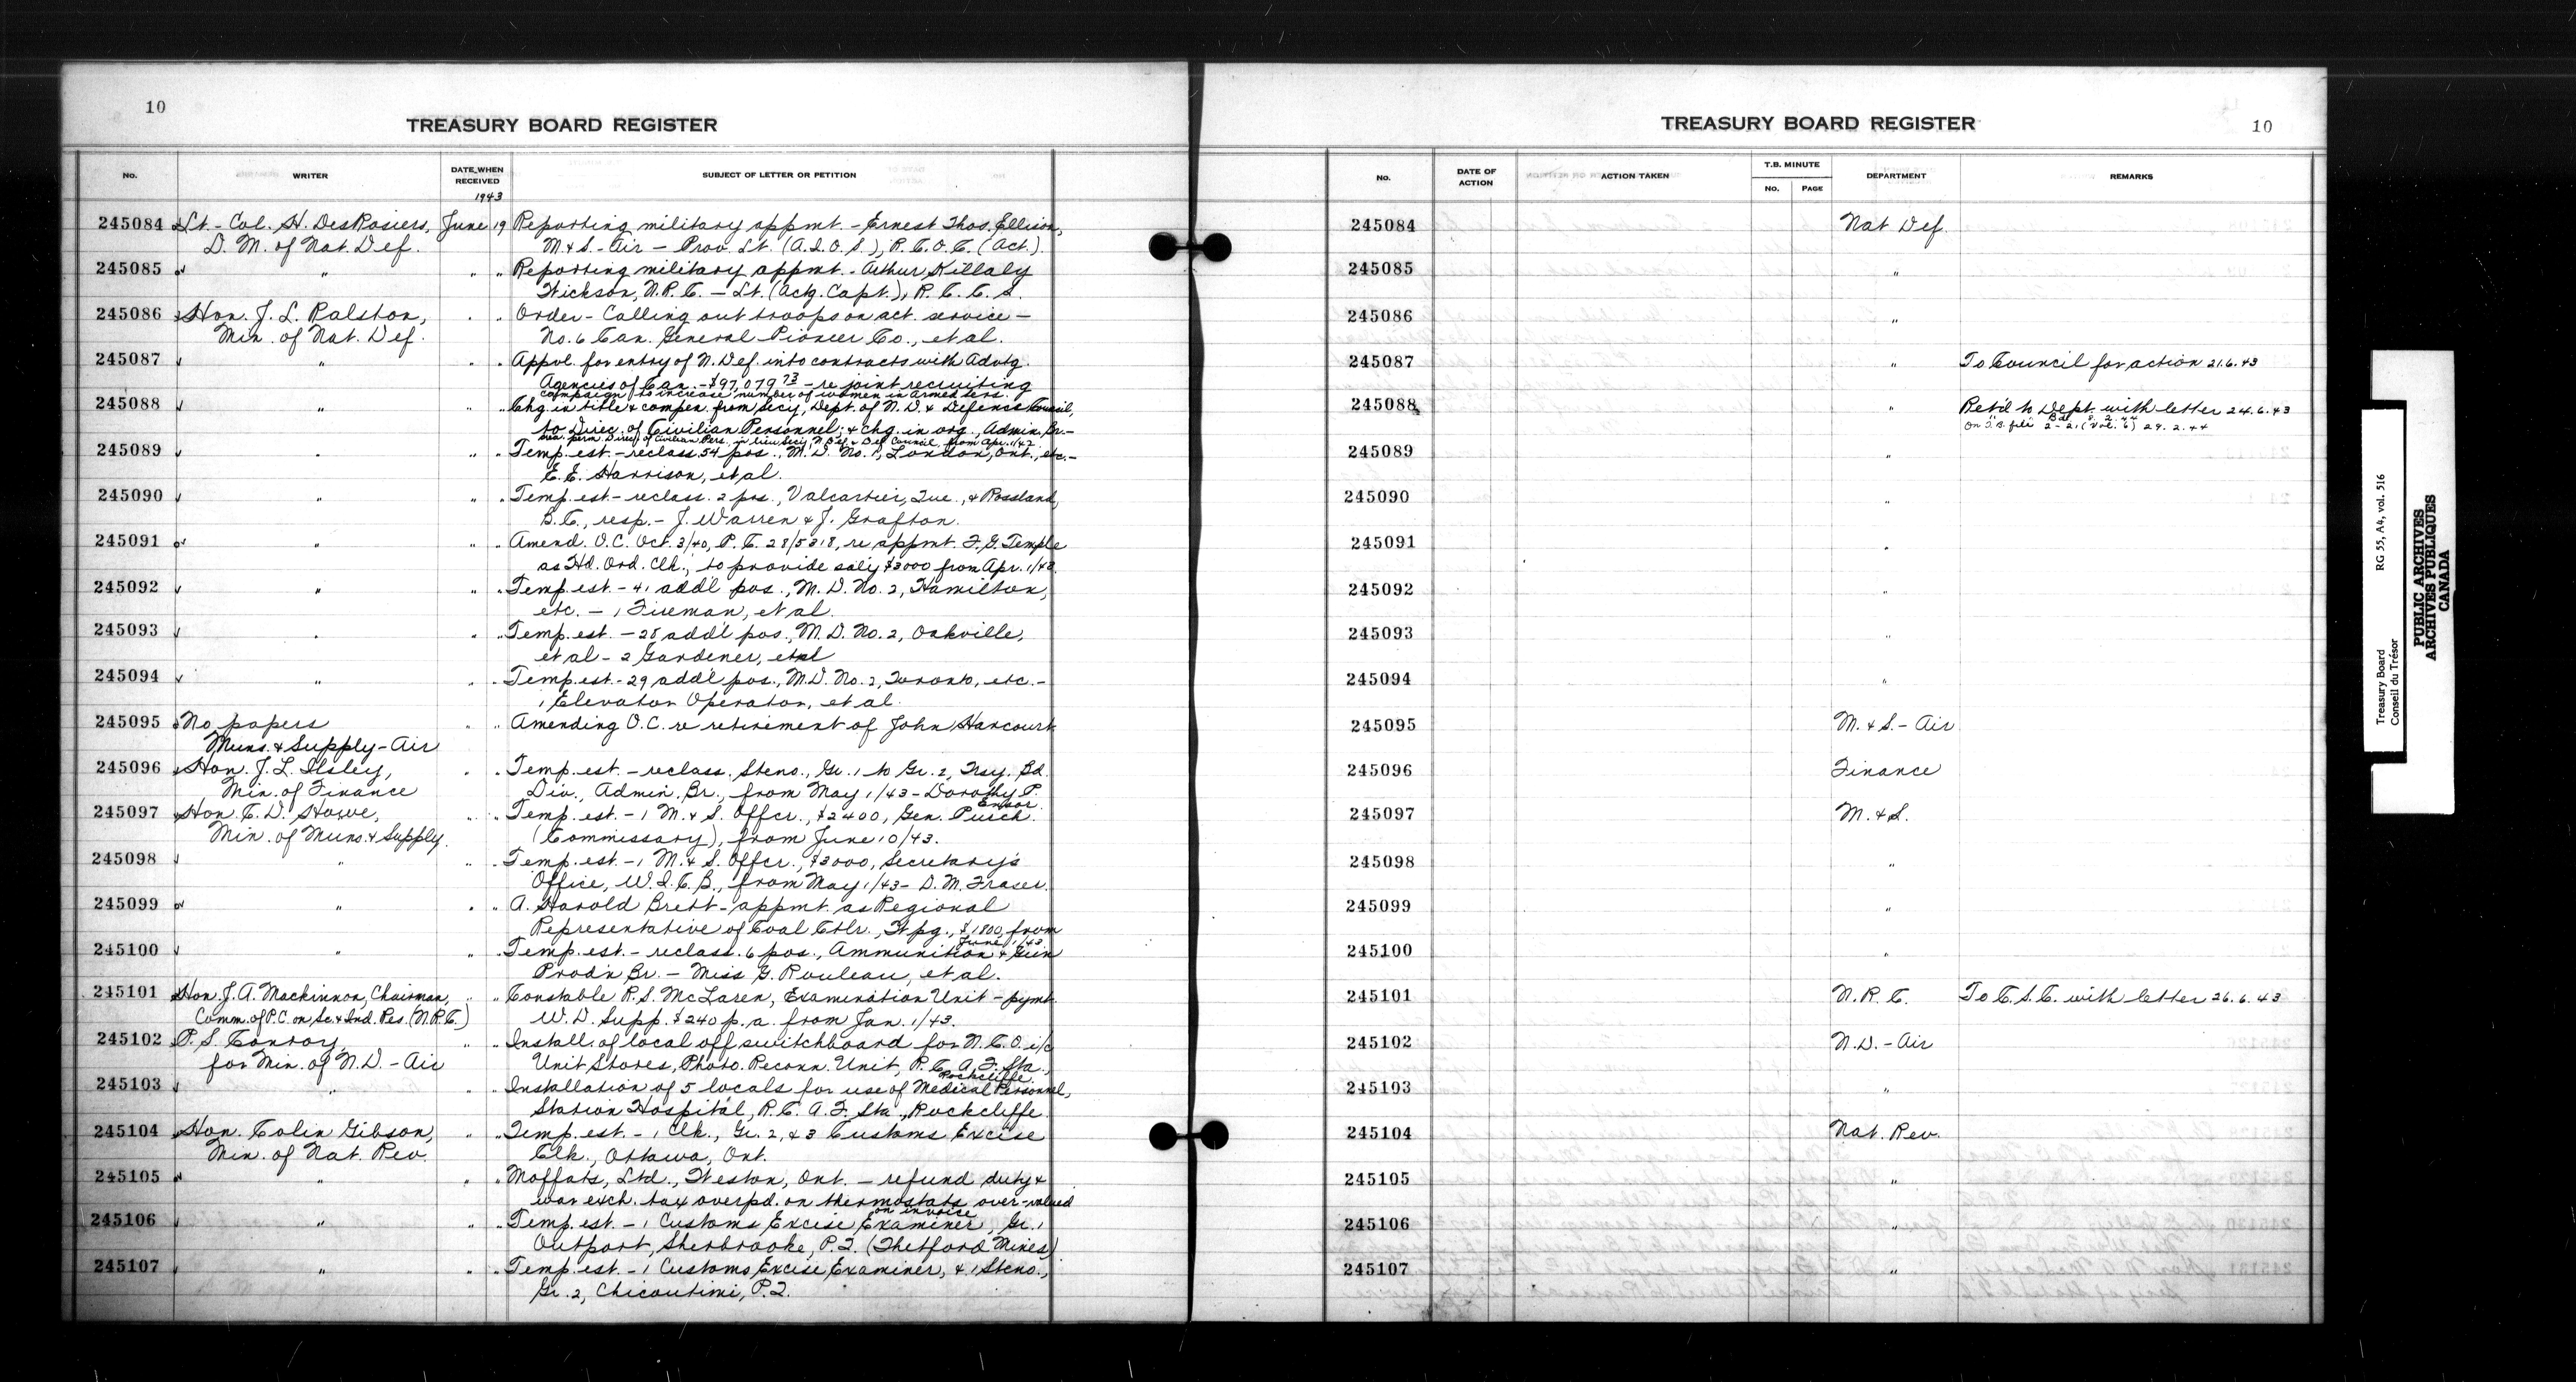 10
TREASURY BOARD REGISTER
No.
WRITER
DATE WHEN RECEIVED
SUBJECT OF LETTER OR PETITION
1943
245084 Lt.-Col. H. DesRosiers, June 19 Reporting military appmt. - Ernest Thos. Ellison,
D. M. of Nat. Def. M. & S. - Air - Prov. Lt. (A.I.O.S.), R.C.O.C. (Act.).
245085 " " " Reporting military appmt. - Arthur Killaly
Hickson, N.R.C. - Lt. (Actg. Capt.), R.C.C.S.
245086 Hon. J. L. Ralston, " " Order - Calling out troops on act. service -
Min. of Nat. Def. No. 6 Can. General Pioneer Co., et al.
245087 " " " Appvl. for entry of N. Def. into contracts with Advtg.
Agencies of Can. - $97,079.73 - re joint recruiting
campaign to increase number of women in armed servs.
245088 " " " Chg. in title & compen. from Secy, Dept. of N.D. & Defence Council,
to Direc. of Civilian Personnel; & chg. in org., Admin. Br. -
perm. Direc. of Civilian Pers. in lieu Secy, N. Def. & Def. Council, from Apr. 1/42
245089 " " " Temp. est. - reclass. 54 pos., M.D. No. 1, London, Ont., etc. -
E. E. Harrison, et al.
245090 " " " Temp. est. - reclass. 2 pos., Valcartier, Que., & Rossland,
B.C., resp. - J. Warren & J. Grafton.
245091 " " " Amend. O.C. Oct. 3/40, P.C. 28/5318, re appmt. F. G. Temple
as Hd. Ord. Clk., to provide saly $3000 from Apr. 1/43.
245092 " " " Temp. est. - 41 addl pos., M.D. No. 2, Hamilton,
etc. - 1 Fireman, et al.
245093 " " " Temp. est. - 28 addl pos., M.D. No. 2, Oakville,
et al - 2 Gardener, et al
245094 " " " Temp. est. - 29 addl pos., M.D. No. 2, Toronto, etc. -
1 Elevator Operator, et al.
245095 No papers " " Amending O.C. re retirement of John Harcourt
Muns. & Supply - Air
245096 Hon. J. L. Ilsley, " " Temp. est. - reclass. Steno., Gr. 1 to Gr. 2, Trsy. Bd.
Min. of Finance Div., Admin. Br., from May 1/43 - Dorothy P.
Ensor.
245097 Hon. C. D. Howe, " " Temp. est. - 1 M. & S. Offcr., $2400, Gen. Purch.
Min. of Muns. & Supply. (Commissary), from June 10/43.
245098 " " " Temp. est. - 1 M. & S. Offcr., $3000, Secretary's
Office, W.I.C.B., from May 1/43 - D. M. Fraser.
245099 " " " A. Harold Brett - appmt. as Regional
Representative of Coal Ctlr., Wpg., $1800, from
June 1/43.
245100 " " " Temp. est. - reclass. 6 pos., Ammunition & Gun
Prodn Br. - Miss G. Rouleau, et al.
245101 Hon. J. A. Mackinnon, Chairman, " " Constable R. S. McLaren, Examination Unit - pymt.
Comm. of P.C. on Sc. & Ind. Res. (N.R.C.) W.D. Supp. $240 p.a. from Jan. 1/43.
245102 P. S. Conroy, " " Install. of local off switchboard for N.C.O. i/c
for Min. of N.D. - Air Unit Stores, Photo. Reconn. Unit, R.C.A.F. Sta.
Rockcliffe.
245103 " " " Installation of 5 locals for use of Medical Personnel,
Station Hospital, R.C.A.F. Sta., Rockcliffe.
245104 Hon. Colin Gibson, " " Temp. est. - 1 Clk., Gr. 2, & 3 Customs Excise
Min. of Nat. Rev. Clk., Ottawa, Ont.
245105 " " " Moffats, Ltd., Weston, Ont. - refund duty &
war exch. tax overpd. on thermostats over-valued
on invoice
245106 " " " Temp. est. - 1 Customs Excise Examiner, Gr. 1
Outport, Sherbrooke, P.Q. (Thetford Mines)
245107 " " " Temp. est. - 1 Customs Excise Examiner, & 1 Steno.,
Gr. 2, Chicoutimi, P.Q.
TREASURY BOARD REGISTER
10
No.
DATE OF ACTION
ACTION TAKEN
T.B. MINUTE
No.
PAGE
DEPARTMENT
REMARKS
245084 Nat Def.
245085 "
245086 "
245087 " To Council for action 21.6.43
245088 " Ret'd to Dept. with letter 24.6.43
On T.B. file 2-21 (Vol. 6) 29.2.44
245089 "
245090 "
245091 "
245092 "
245093 "
245094 "
245095 M. & S. - Air
245096 Finance
245097 M. & S.
245098 "
245099 "
245100 "
245101 N.R.C. To C.S.C. with letter 26.6.43
245102 N.D. - Air
245103 "
245104 Nat. Rev.
245105 "
245106 "
245107 "
Treasury Board
Conseil du Trésor
RG 55, A4, vol. 516
PUBLIC ARCHIVES
ARCHIVES PUBLIQUES
CANADA